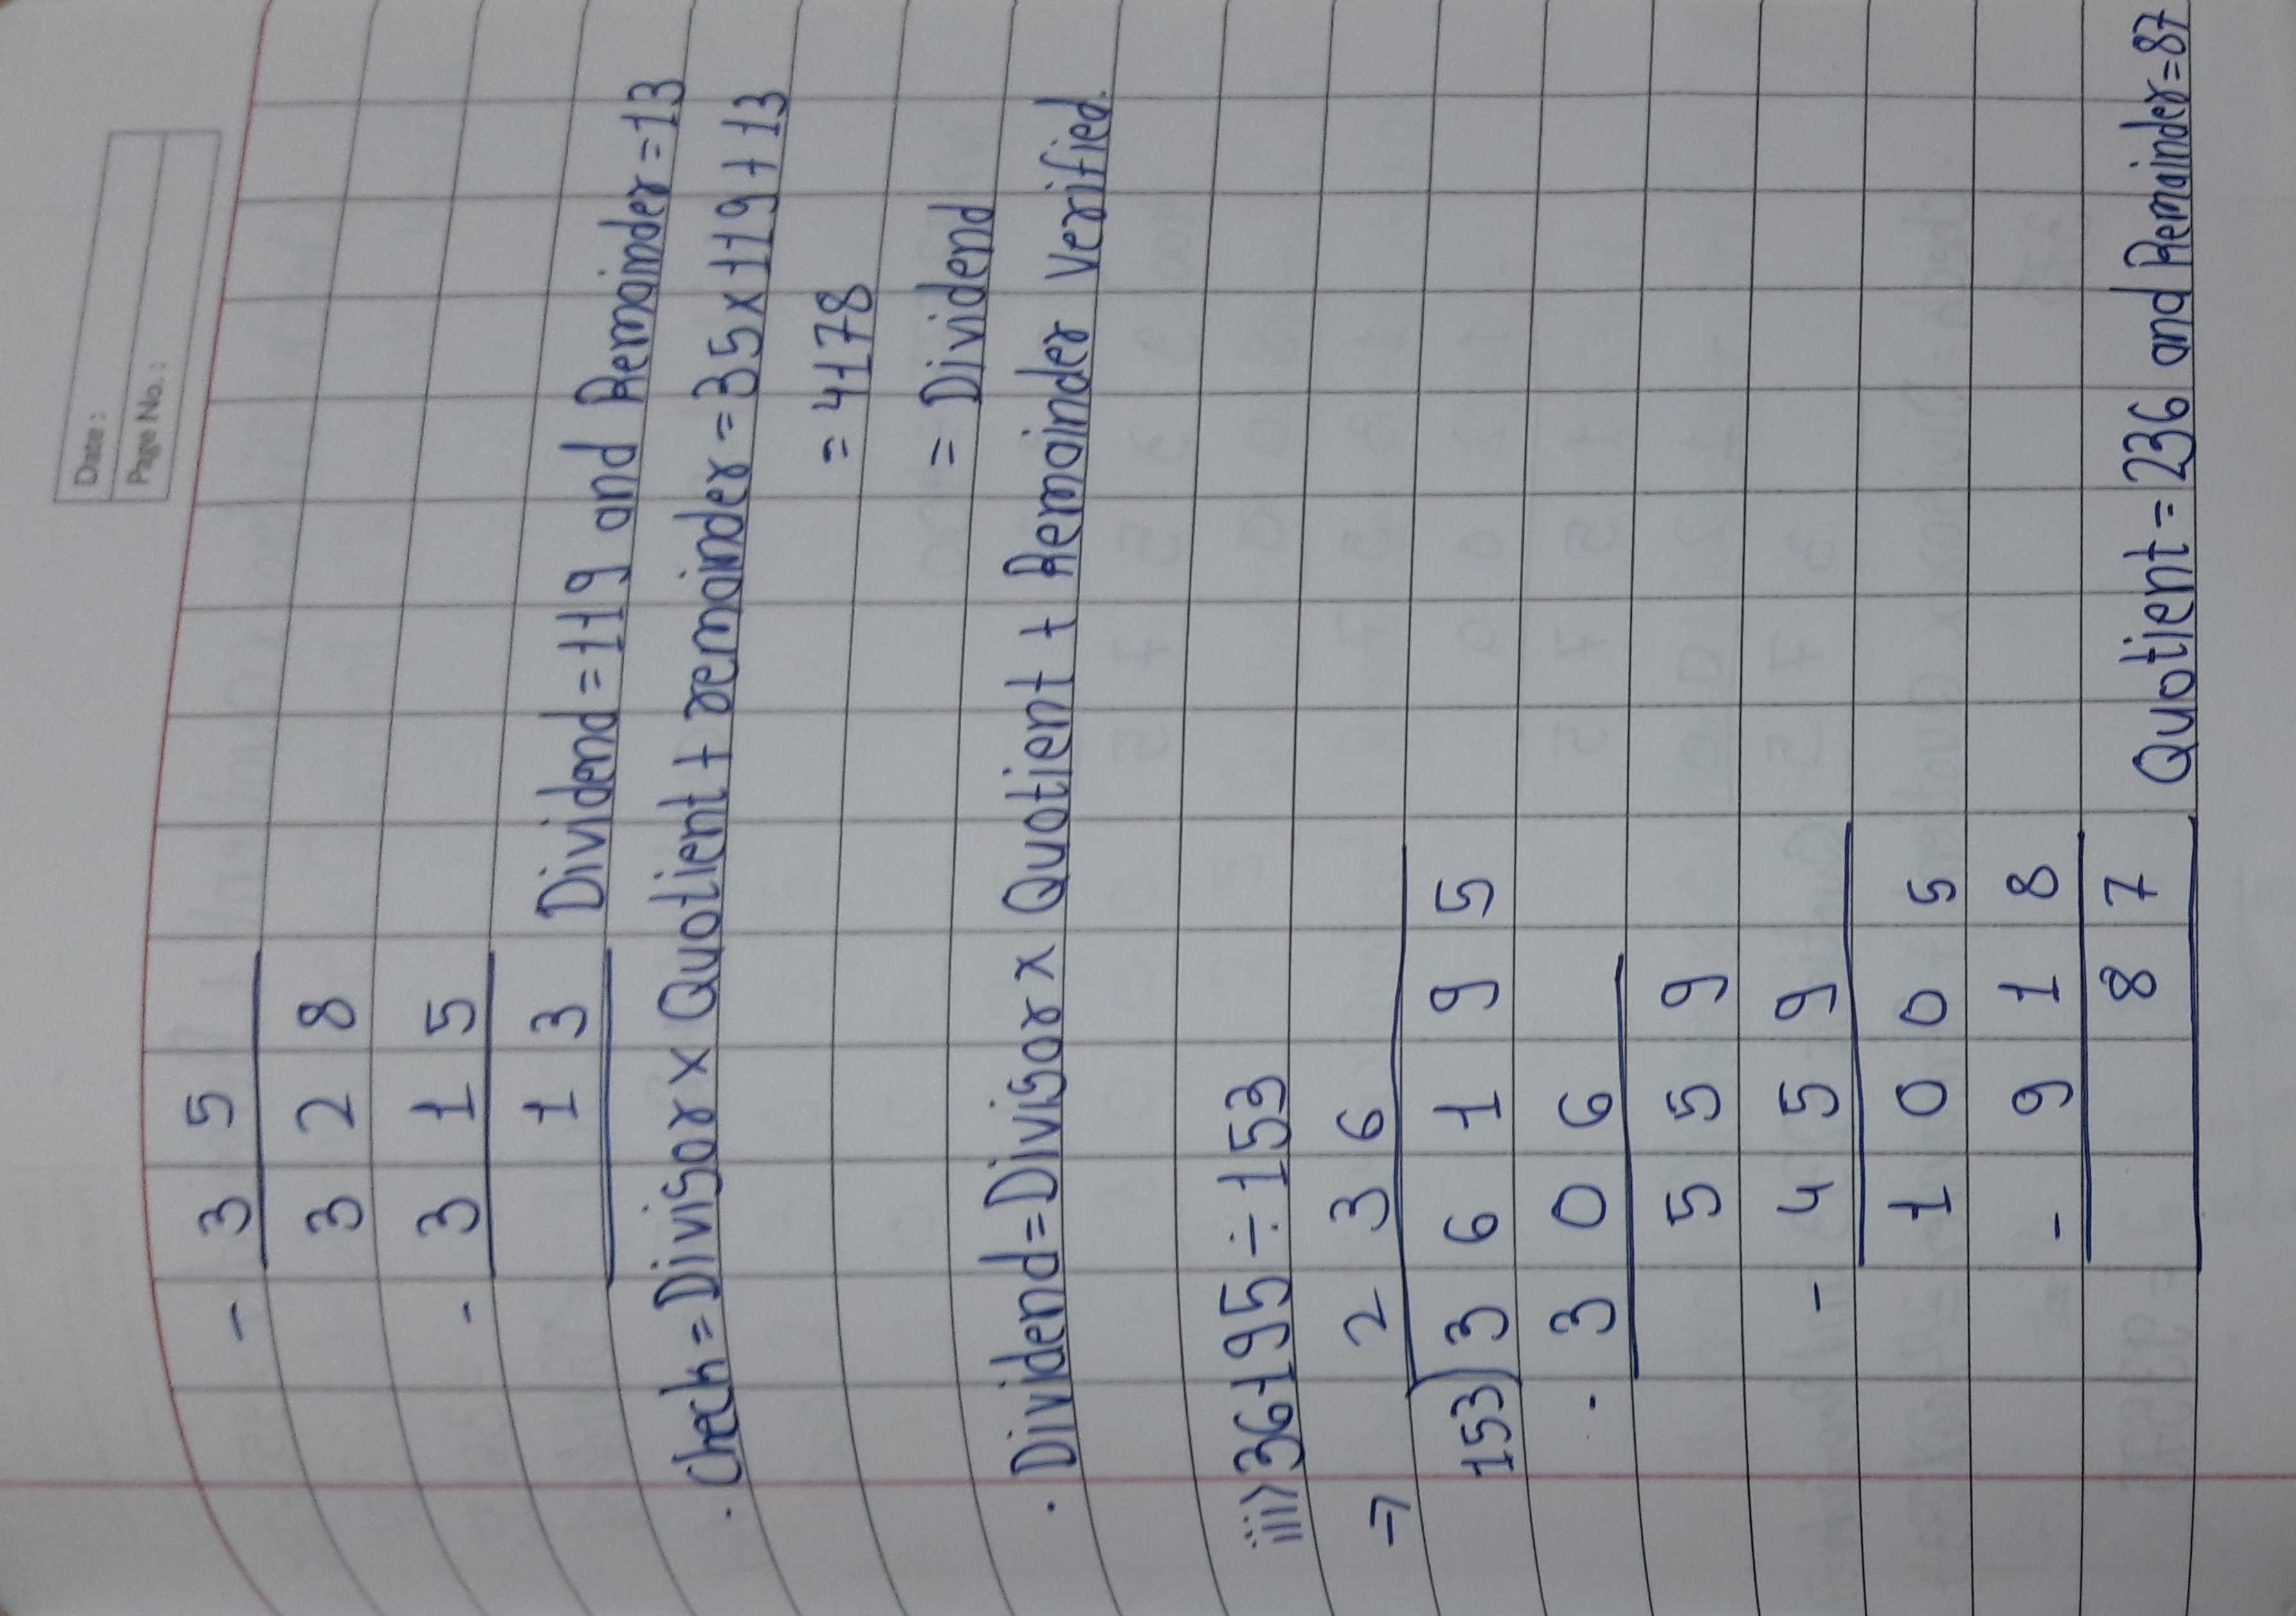 Date :
Page No. :
- 3 5
3 2 8
- 3 1 5
1 3 Dividend = 119 and Remainder = 13
. Check = Divisor x Quotient + remainder = 35 x 119 + 13
= 4178
= Dividend
. Dividend = Divisor x Quotient + Remainder verified.
iii) 36195 ÷ 153
⇒ 2 3 6
153) 3 6 1 9 5
- 3 0 6
5 5 9
- 4 5 9
1 0 0 5
- 9 1 8
8 7 Quotient = 236 and Remainder = 87